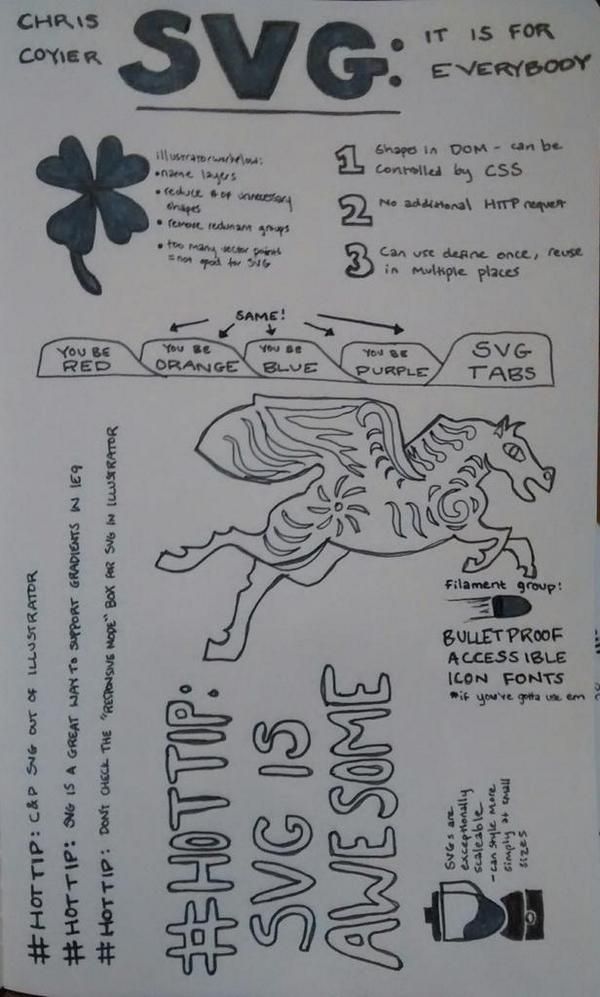 CHRIS
COYIER
SVG:
IT IS FOR
EVERYBODY
illustrator workflow:
• name layers
• reduce # of unnecessary
shapes
• remove redunant groups
• too many vector points
= not good for SVG
1 Shapes in DOM - can be
controlled by CSS
2 No additional HTTP request
3 Can use define once, reuse
in multiple places
SAME!
YOU BE
RED
YOU BE
ORANGE
YOU BE
BLUE
YOU BE
PURPLE
SVG
TABS
#HOTTIP: C&P SVG OUT OF ILLUSTRATOR
#HOTTIP: SVG IS A GREAT WAY TO SUPPORT GRADIENTS IN IE9
#HOTTIP: DON'T CHECK THE "RESPONSIVE MODE" BOX FOR SVG IN ILLUSTRATOR
#HOTTIP:
SVG IS
AWESOME
filament group:
BULLETPROOF
ACCESSIBLE
ICON FONTS
*if you've gotta use em
SVGs are
exceptionally
scaleable
- can style more
simply at small
sizes